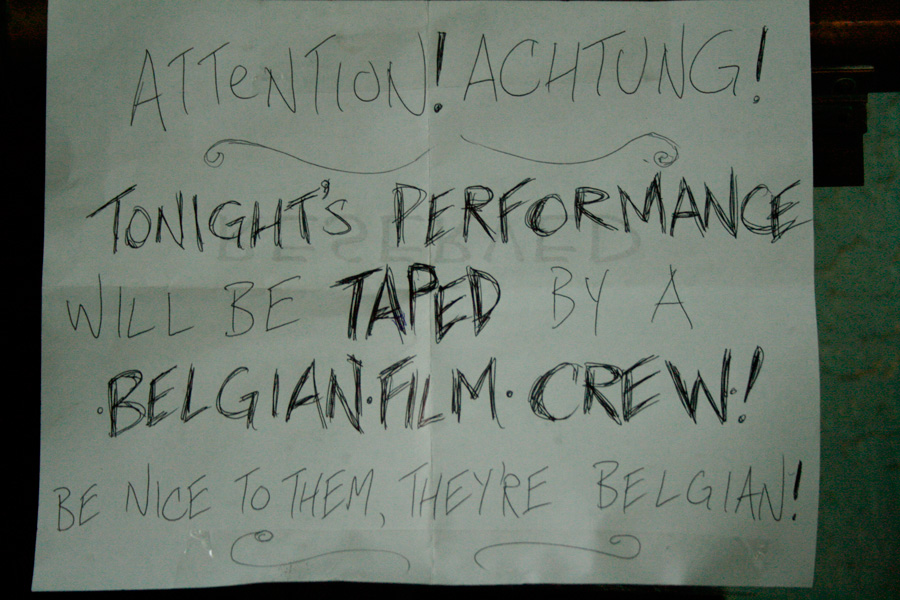 ATTeNTION! ACHTUNG!
TONIGHT'S PERFORMANCE
WILL BE TAPED BY A
·BELGIAN·FILM·CREW·!
BE NICE TO THEM, THEY'RE BELGIAN!